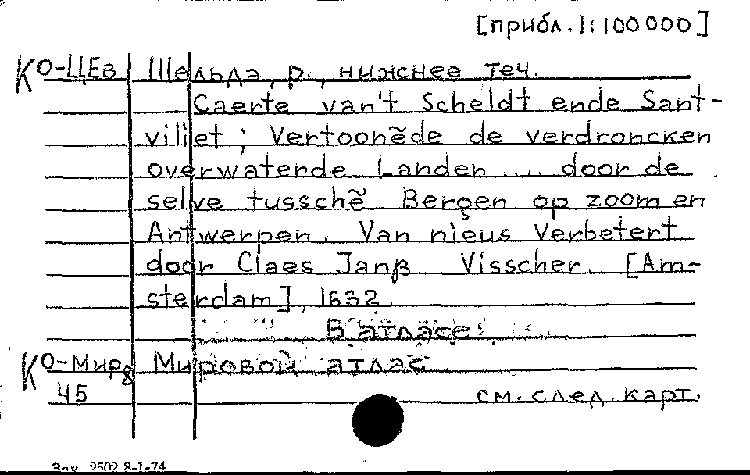 [прибл. 1:100 000]
Ко-ЦЕв Шельда, р., нижнее теч.
Caerte van't Scheldt ende Sant-
vliet; Vertoonẽde de verdroncken
overwaterde Landen ... door de
selve tusschẽ Bergen op zoom en
Antwerpen. Van nieus Verbetert
door Claes Janß Visscher. [Am-
sterdam], 1632
В атласе:
Ко-Мир8 Мировой атлас
45
см. след. карт.
Зак. 2502 8-1-74